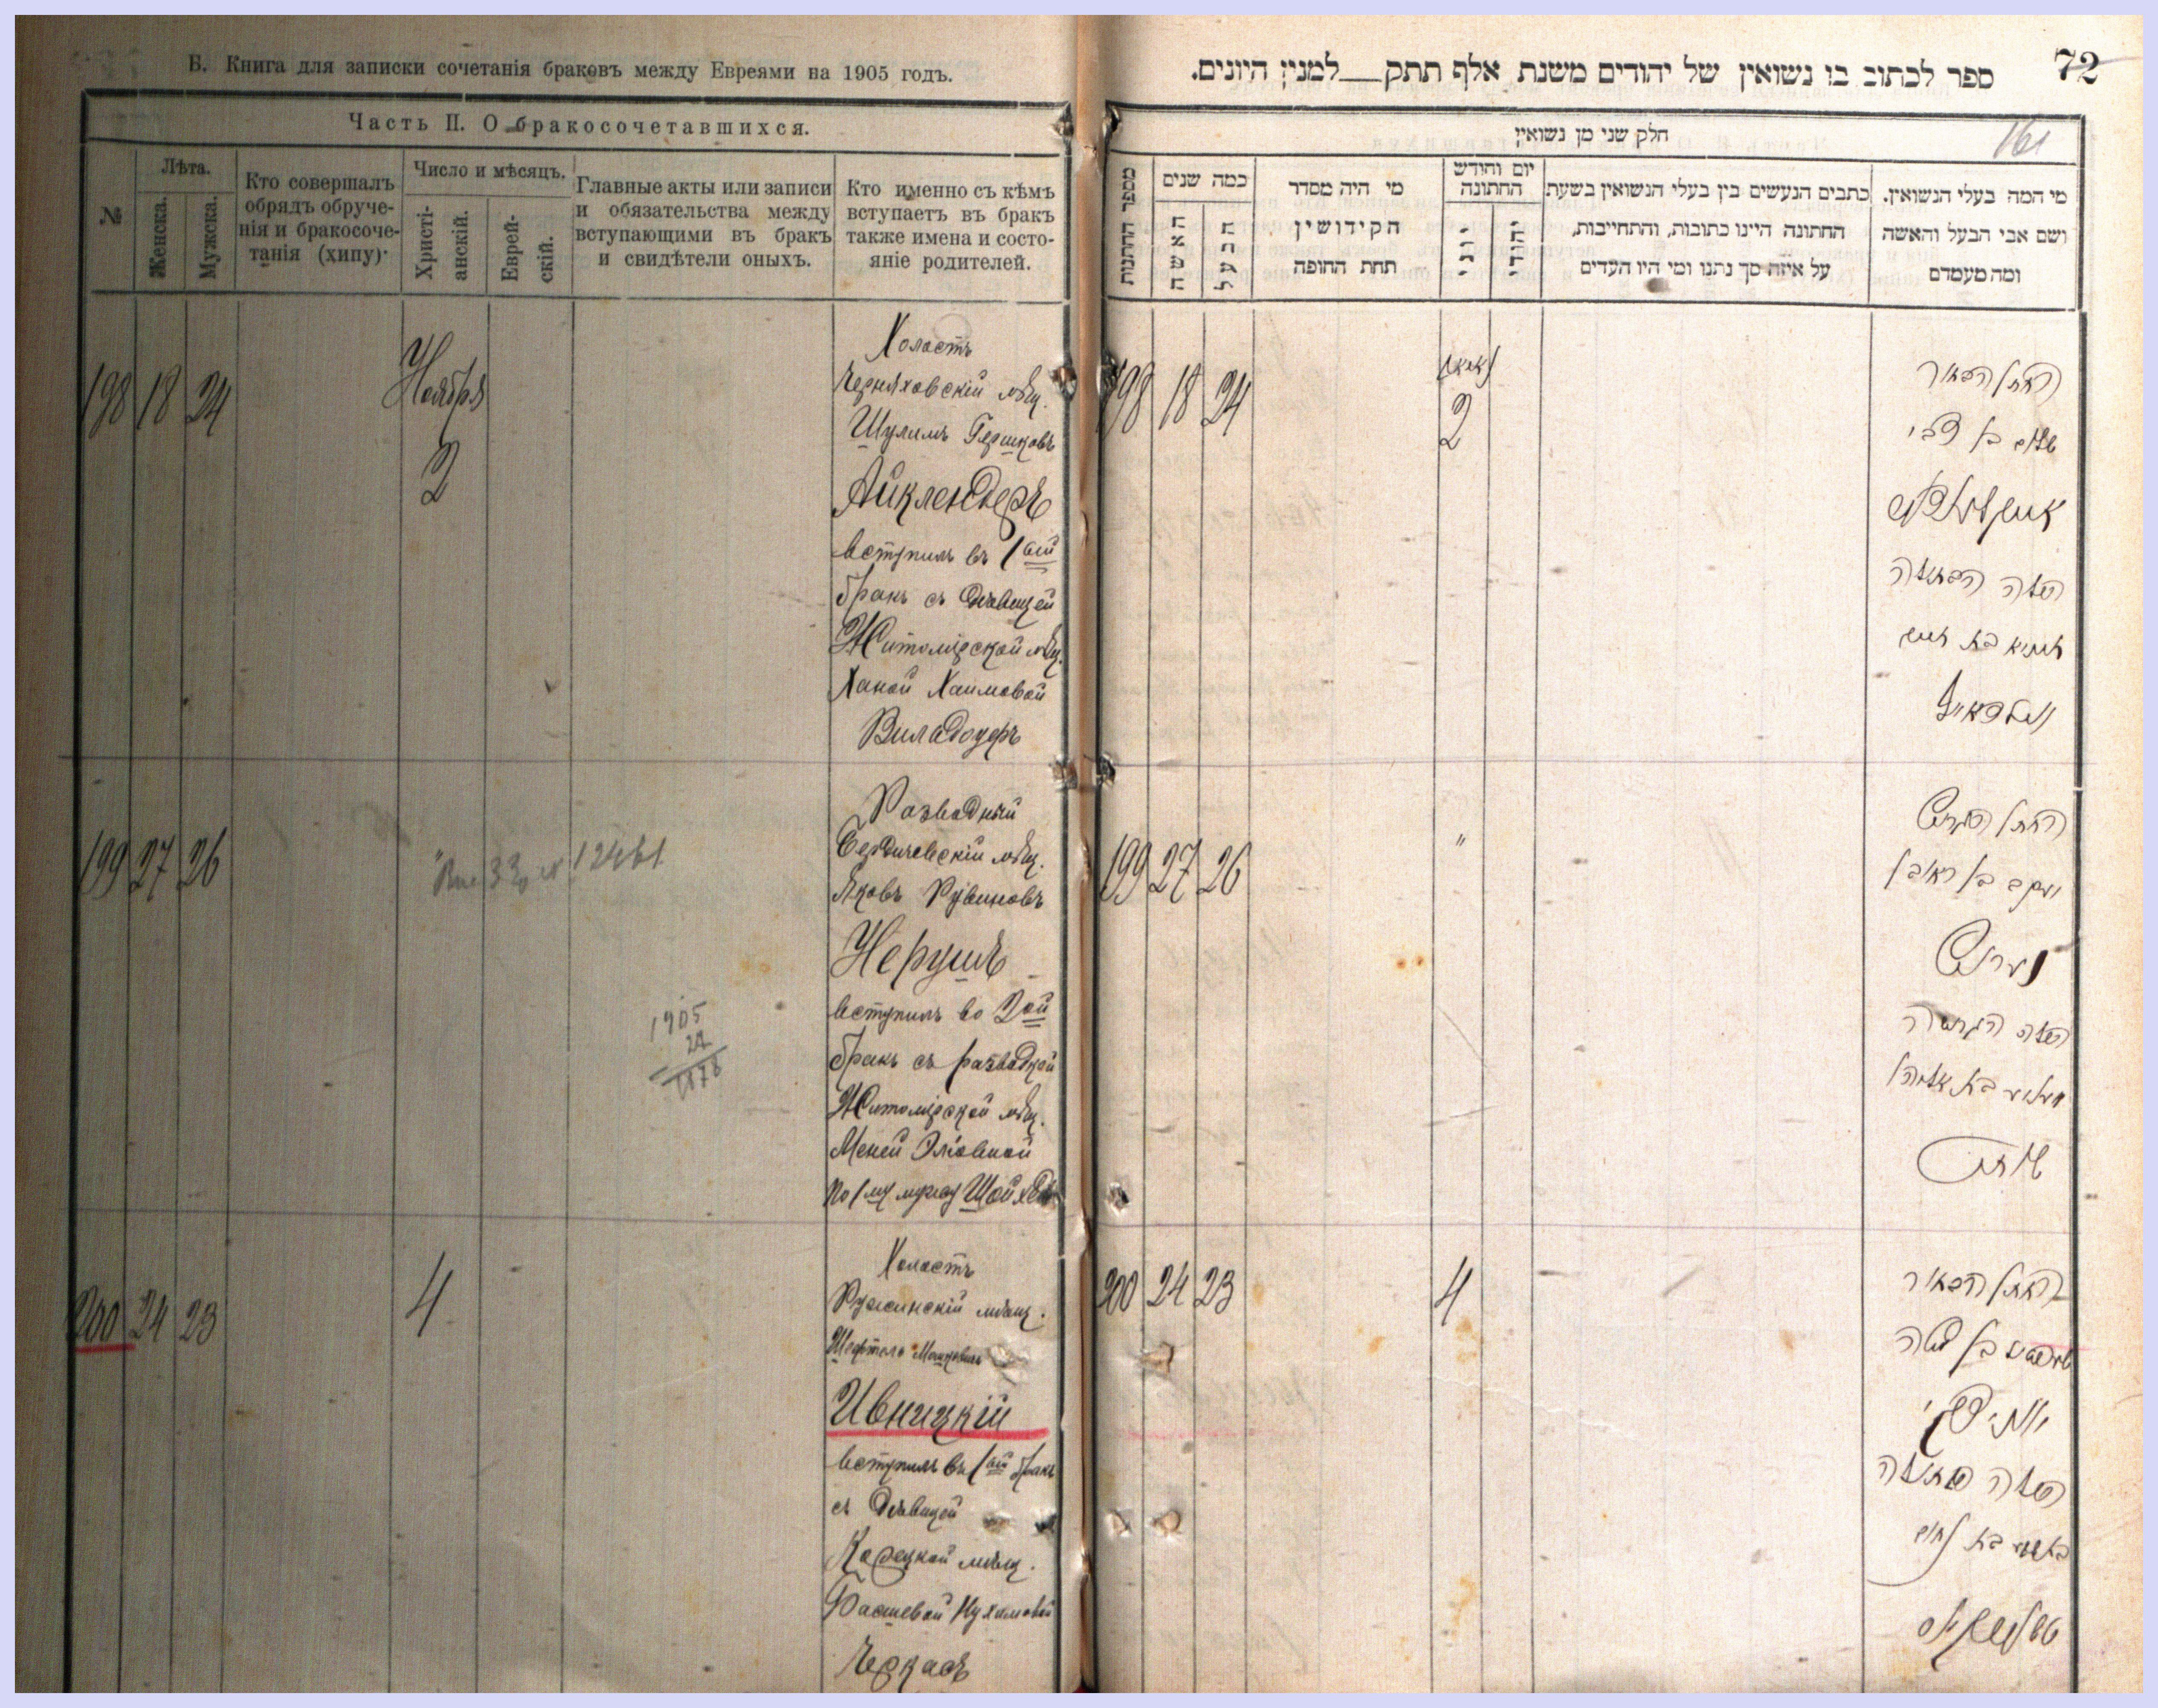 Б. Книга для записки сочетанія браковъ между Евреями на 1905 годъ.
Часть II. О бракосочетавшихся.
№
Лѣта.
Женска.
Мужска.
Кто совершалъ
обрядъ обруче-
нія и бракосоче-
танія (хипу)
Число и мѣсяцъ.
Христі-
анскій.
Еврей-
скій.
Главные акты или записи
и обязательства между
вступающими въ бракъ
и свидѣтели оныхъ.
Кто именно съ кѣмъ
вступаетъ въ бракъ
также имена и состо-
яніе родителей.
198 18 24
Ноября
2
Холостъ
Черняховскій мѣщ.
Шулимъ Гершковъ
Айклендеръ
вступилъ въ 1ый
бракъ съ дѣвицей
Житомірской мѣщ.
Ханой Хаимовой
199 27 26
"
12461
1905
27
1878
Разводный
Бердичевскій мѣщ.
Яковъ Рувиновъ
Нерушъ
вступилъ во 2ой
бракъ съ разводкой
Житомірской мѣщ.
Меней Эліовной
по 1му мужу
200 24 23
4
Холостъ
Ружинскій мѣщ.
Шефтель Мошковичъ
Ивницкій
вступилъ въ 1ый бракъ
съ дѣвицей
Корецкой мѣщ.
Басшевой Нухимовой
Черкасъ
72
161
ספר לכתוב בו נשואין של יהודים משנת אלף תתק למנין היונים.
חלק שני מן נשואין
מספר החתנות
כמה שנים
האשה
הבעל
מי היה מסדר
הקידושין
תחת החופה
יום וחודש
החתונה
יוני
יהודי
כתבים הנעשים בין בעלי הנשואין בשעת
החתונה היינו כתובות, והתחייבות,
על איזה סך נתנו ומי היו העדים
מי המה בעלי הנשואין.
ושם אבי הבעל והאשה
ומה מעמדם
198 18 24
2
החתן הבחור
שלום בן צבי
הכלה הבתולה
199 27 26
"
החתן הגרוש
יעקב בן ראובן
נערוש
הכלה הגרושה
200 24 23
4
החתן הבחור
בן משה
הכלה הבתולה
בת נחום